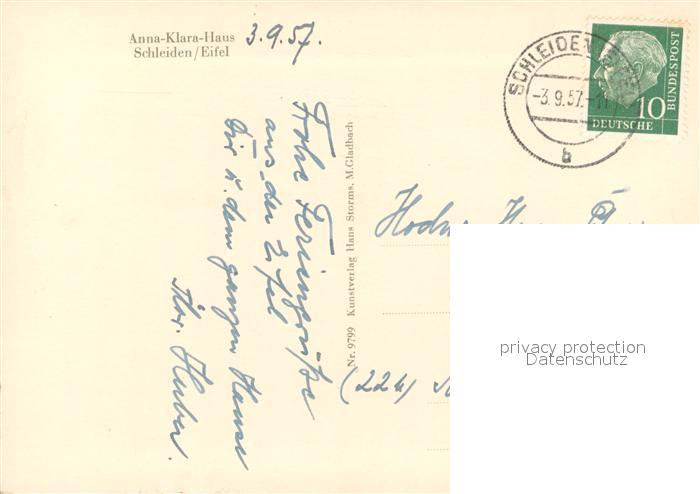 Anna-Klara-Haus
Schleiden/Eifel
3.9.57.
Frohe Feriengrüße
aus der Eifel
Dir u. dem ganzen Hause
Huber.
Nr. 9799 Kunstverlag Hans Storms, M.Gladbach
SCHLEIDEN
-3.9.57.-11
b
10
DEUTSCHE
BUNDESPOST
Hochw. Herrn
(22a)
privacy protection
Datenschutz